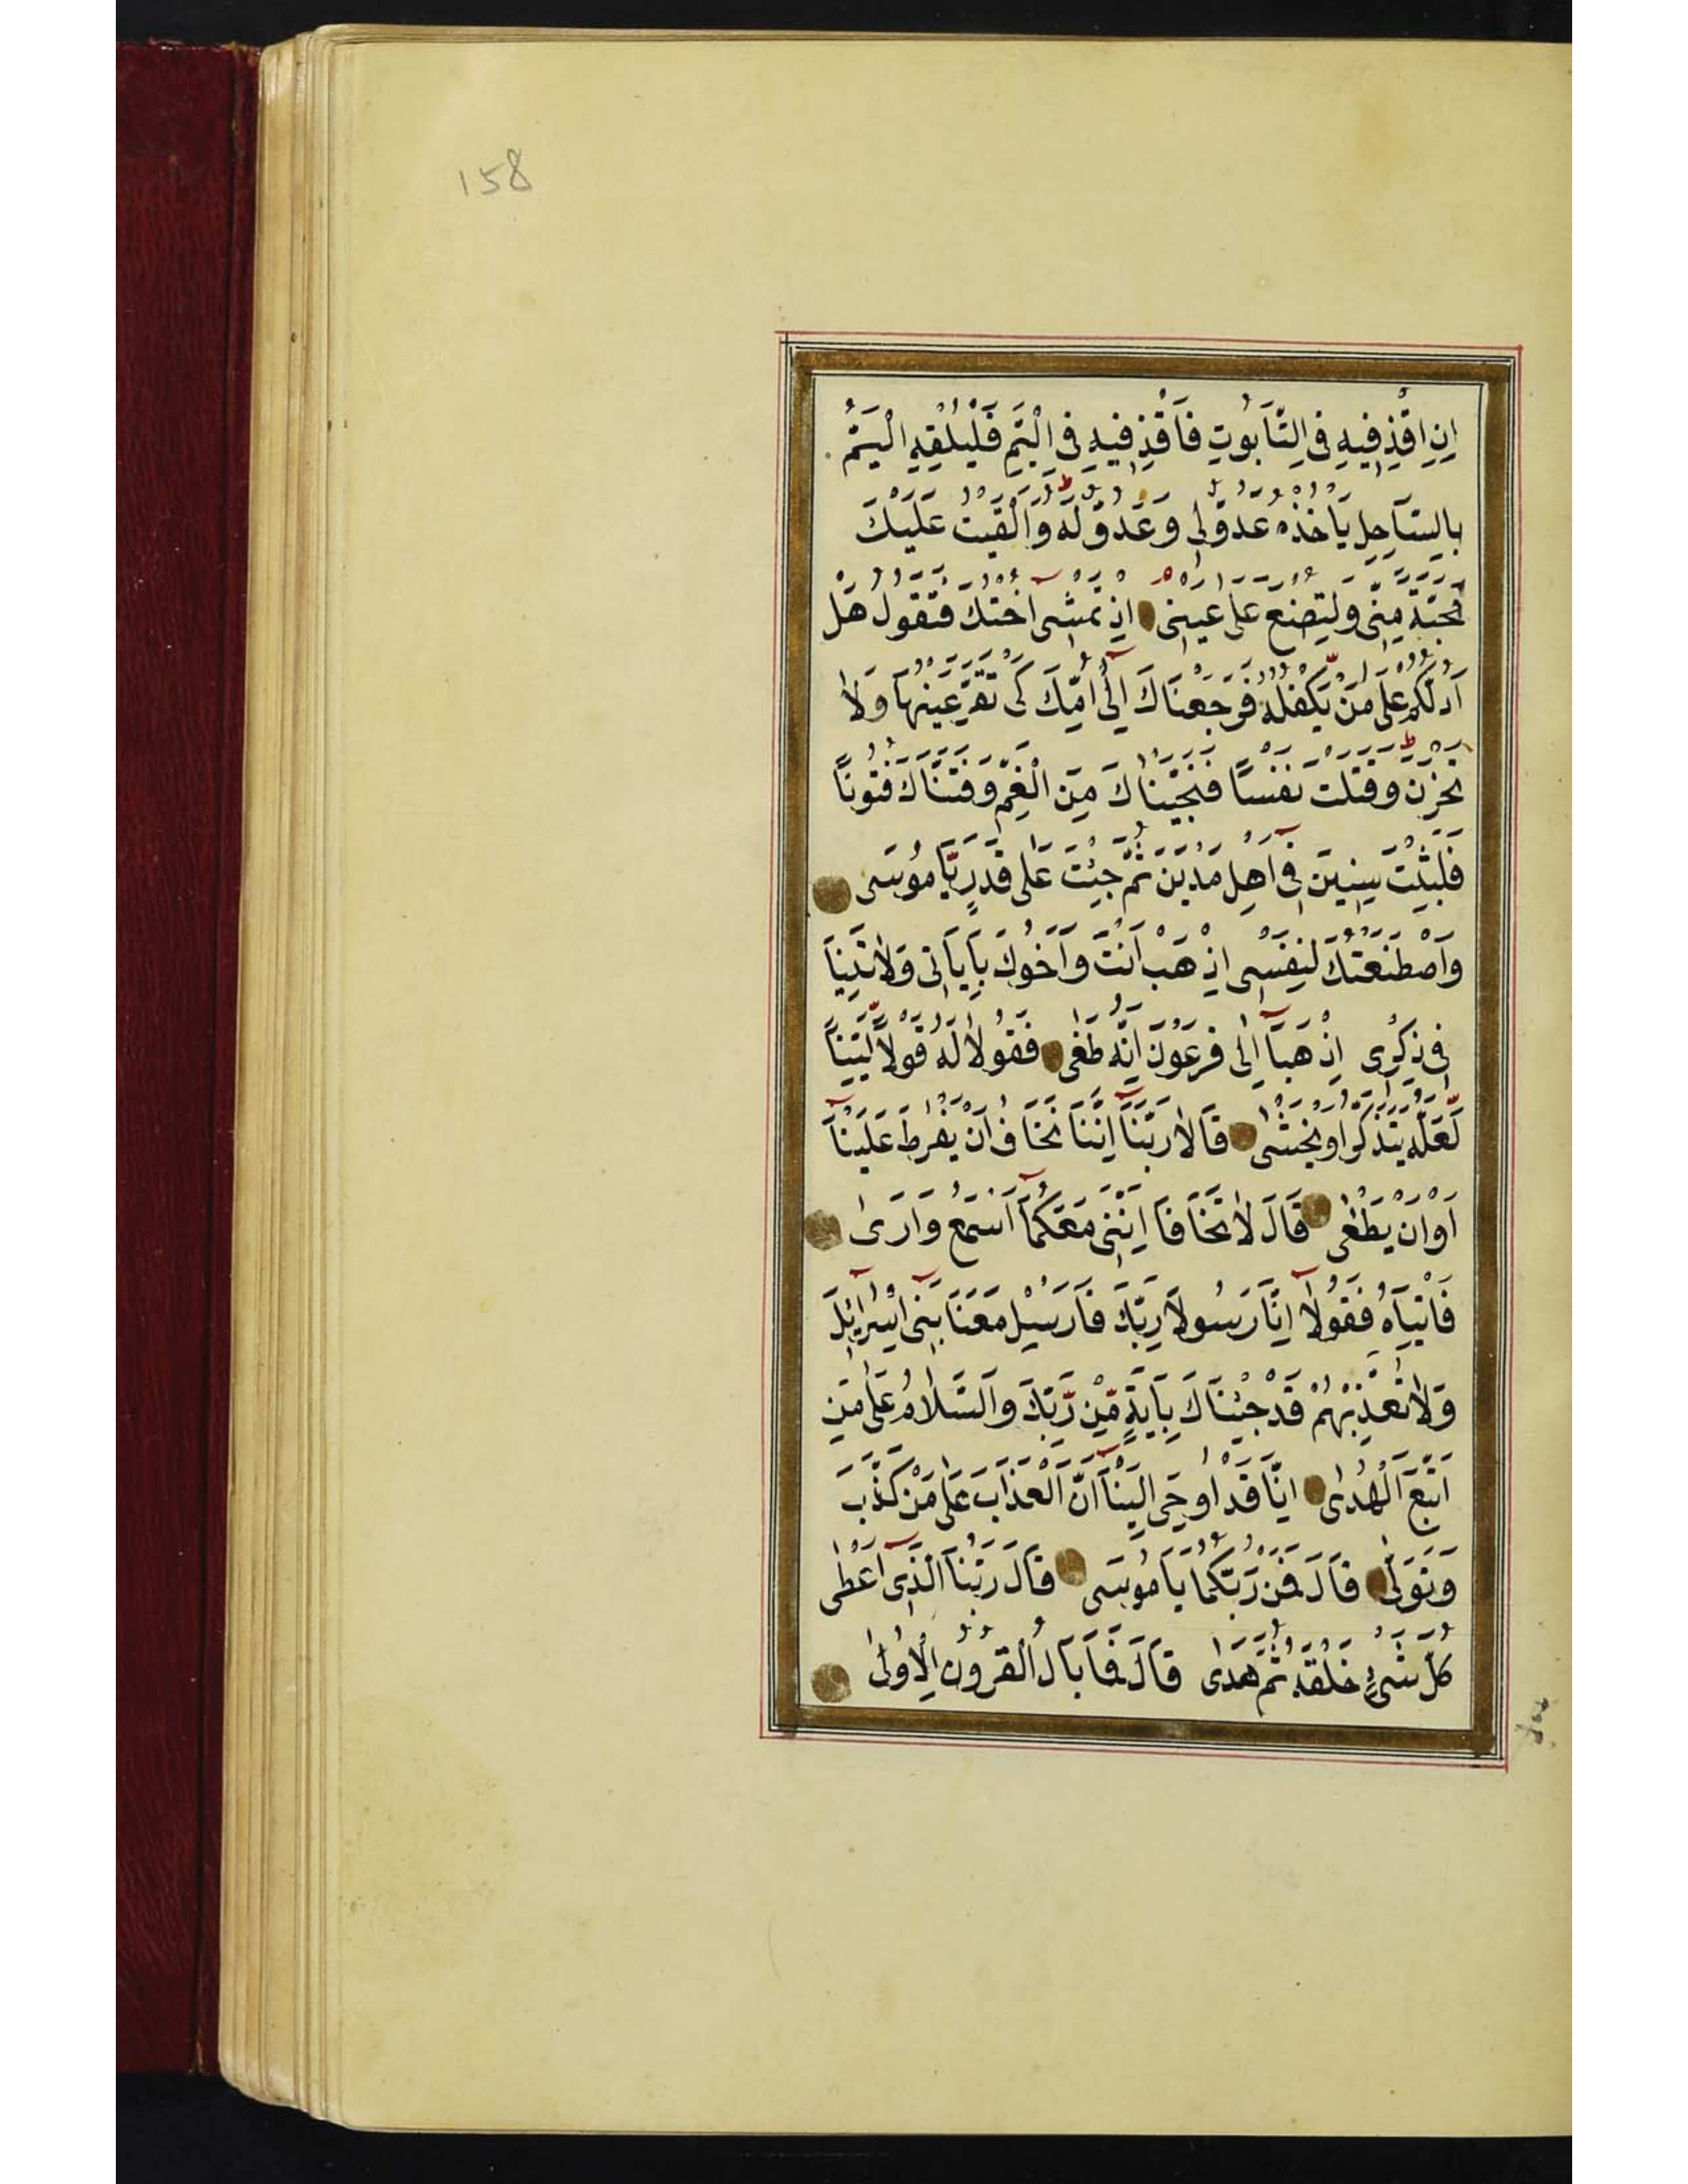 158
اِنِ اقْذِفِيهِ فِي التَّابُوتِ فَاقْذِفِيهِ فِي الْيَمِّ فَلْيُلْقِهِ الْيَمُّ
بِالسَّاحِلِ يَأْخُذْهُ عَدُوٌّ لِي وَعَدُوٌّ لَهُ وَاَلْقَيْتُ عَلَيْكَ
مَحَبَّةً مِنِّي وَلِتُصْنَعَ عَلٰى عَيْنِي اِذْ تَمْشِي اُخْتُكَ فَتَقُولُ هَلْ
اَدُلُّكُمْ عَلٰى مَنْ يَكْفُلُهُ فَرَجَعْنَاكَ اِلٰٓى اُمِّكَ كَيْ تَقَرَّ عَيْنُهَا وَلَا
تَحْزَنَ وَقَتَلْتَ نَفْسًا فَنَجَّيْنَاكَ مِنَ الْغَمِّ وَفَتَنَّاكَ فُتُونًا
فَلَبِثْتَ سِنِينَ فِٓي اَهْلِ مَدْيَنَ ثُمَّ جِئْتَ عَلٰى قَدَرٍ يَّا مُوسَى
وَاصْطَنَعْتُكَ لِنَفْسِي اِذْهَبْ اَنْتَ وَاَخُوكَ بِاٰيَاتِي وَلَا تَنِيَا
فِي ذِكْرِي اِذْهَبَآ اِلٰى فِرْعَوْنَ اِنَّهُ طَغٰى فَقُولَا لَهُ قَوْلًا لَّيِّنًا
لَّعَلَّهُ يَتَذَكَّرُ اَوْ يَخْشٰى قَالَا رَبَّنَآ اِنَّنَا نَخَافُ اَنْ يَفْرُطَ عَلَيْنَآ
اَوْ اَنْ يَطْغٰى قَالَ لَا تَخَافَا اِنَّنِي مَعَكُمَآ اَسْمَعُ وَاَرٰى
فَاْتِيَاهُ فَقُولَآ اِنَّا رَسُولَا رَبِّكَ فَاَرْسِلْ مَعَنَا بَنِٓي اِسْرَٓائِلَ
وَلَا تُعَذِّبْهُمْ قَدْ جِئْنَاكَ بِاٰيَةٍ مِّنْ رَّبِّكَ وَالسَّلَامُ عَلٰى مَنِ
اتَّبَعَ الْهُدٰى اِنَّا قَدْ اُوحِيَ اِلَيْنَآ اَنَّ الْعَذَابَ عَلٰى مَنْ كَذَّبَ
وَتَوَلّٰى قَالَ فَمَنْ رَبُّكُمَا يَا مُوسَى قَالَ رَبُّنَا الَّذِٓي اَعْطٰى
كُلَّ شَيْءٍ خَلْقَهُ ثُمَّ هَدٰى قَالَ فَمَا بَالُ الْقُرُونِ الْاُولٰى